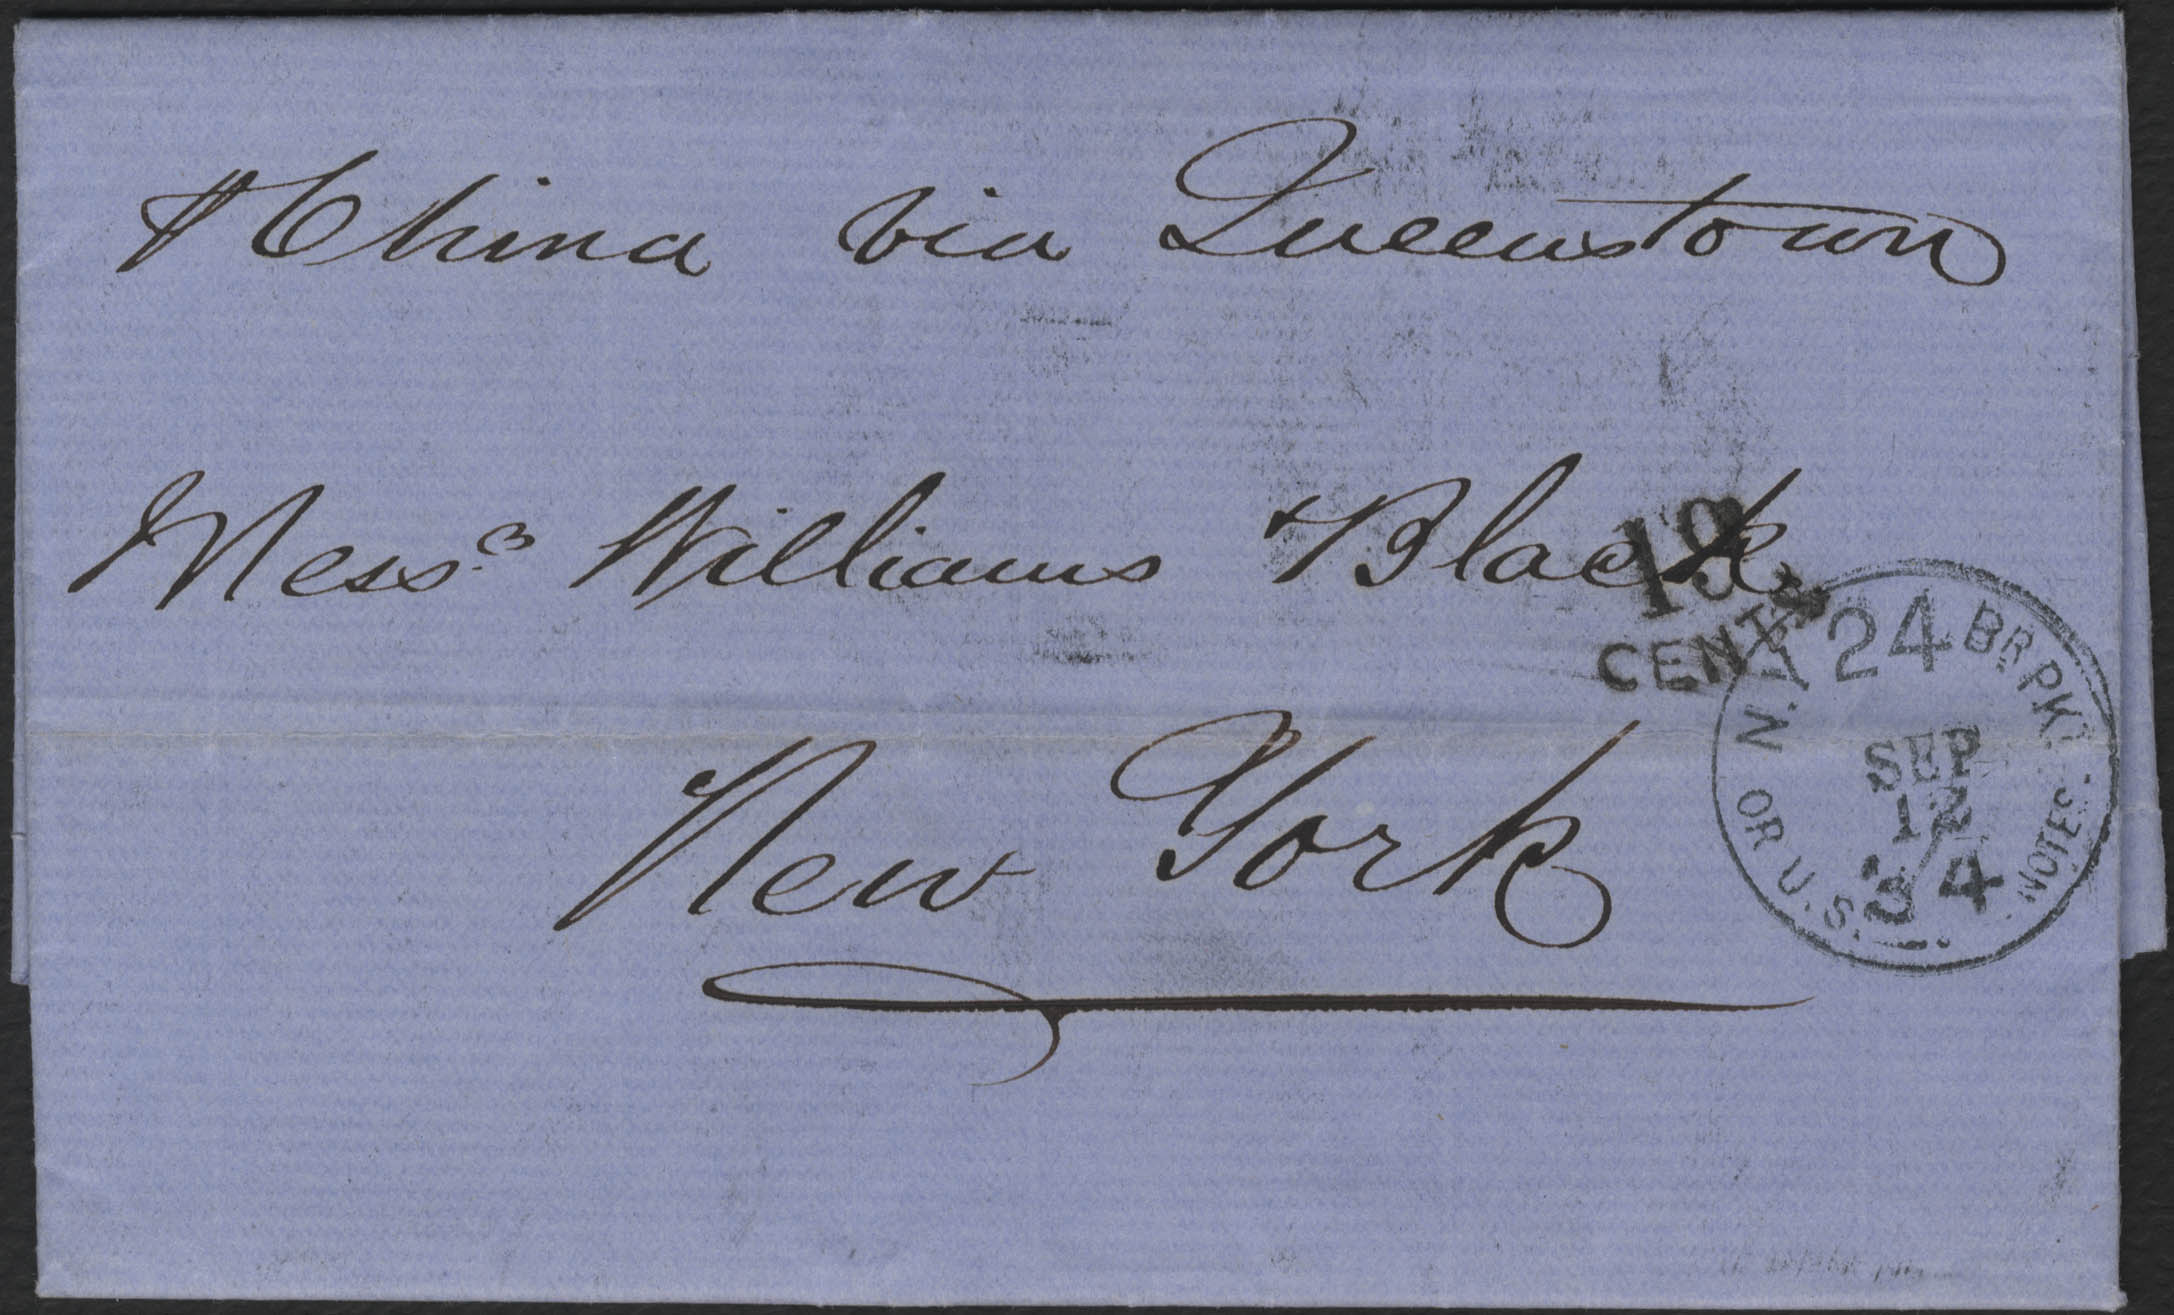 ⅌ China via Queenstown
Mess.rs Williams & Black
New York
CENTS
N.Y. 24 BR. PKT.
SEP
12
34
OR U.S. NOTES.